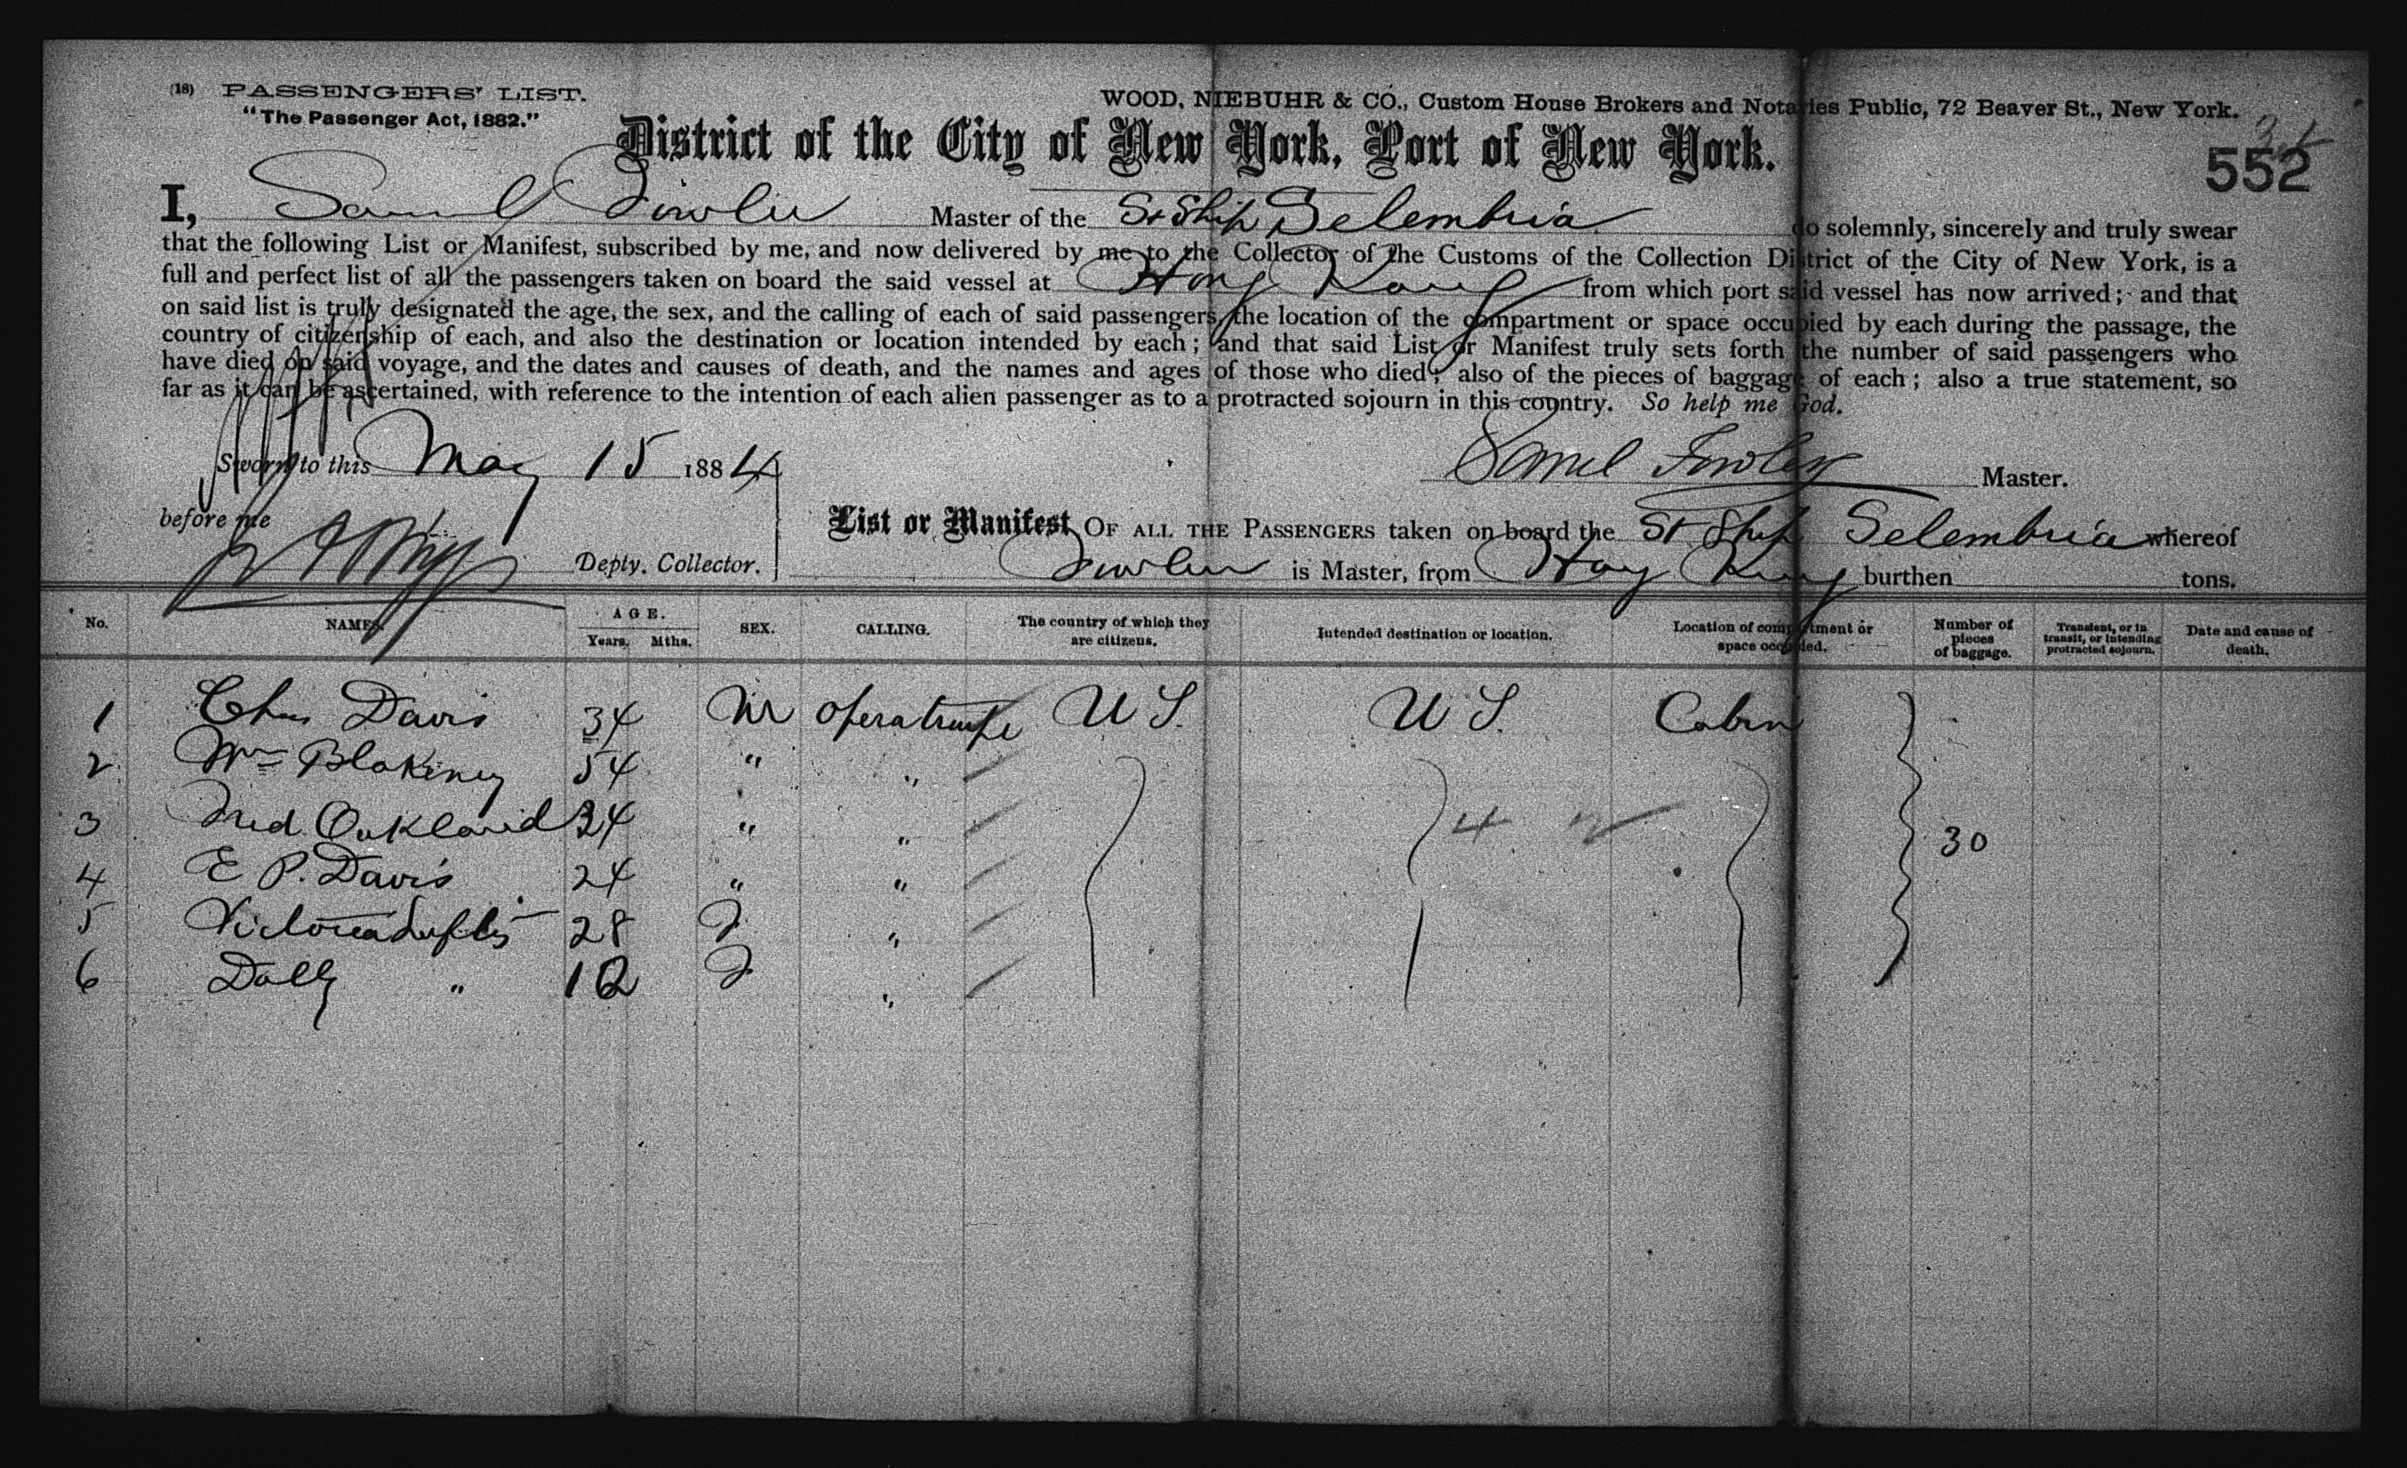 (18) PASSENGERS' LIST.
"The Passenger Act, 1882."
WOOD, NIEBUHR & CO., Custom House Brokers and Notaries Public, 72 Beaver St., New York.
District of the City of New York, Port of New York.
552
I, Saml Fowler Master of the St Ship Selembria do solemnly, sincerely and truly swear
that the following List or Manifest, subscribed by me, and now delivered by me to the Collector of the Customs of the Collection District of the City of New York, is a
full and perfect list of all the passengers taken on board the said vessel at Hong Kong from which port said vessel has now arrived; and that
on said list is truly designated the age, the sex, and the calling of each of said passengers, the location of the compartment or space occupied by each during the passage, the
country of citizenship of each, and also the destination or location intended by each; and that said List or Manifest truly sets forth the number of said passengers who
have died on said voyage, and the dates and causes of death, and the names and ages of those who died; also of the pieces of baggage of each; also a true statement, so
far as it can be ascertained, with reference to the intention of each alien passenger as to a protracted sojourn in this country. So help me God.
Sworn to this May 15 1884
Saml Fowler Master.
before me
Depty. Collector.
List or Manifest OF ALL THE PASSENGERS taken on board the St Ship Selembria whereof
Fowler is Master, from Hong Kong burthen tons.
No. NAMES. AGE. Years. Mths. SEX. CALLING. The country of which they are citizens. Intended destination or location. Location of compartment or space occupied. Number of pieces of baggage. Transient, or in transit, or intending protracted sojourn. Date and cause of death.
1 Chas Davis 34 M U S. U S. Cabin
2 Wm Blakeney 54 " "
3 Fred Oakland 34 " " 4 30
4 E P. Davis 24 " "
5 Victoria 28 F "
6 Dolly " 12 F "